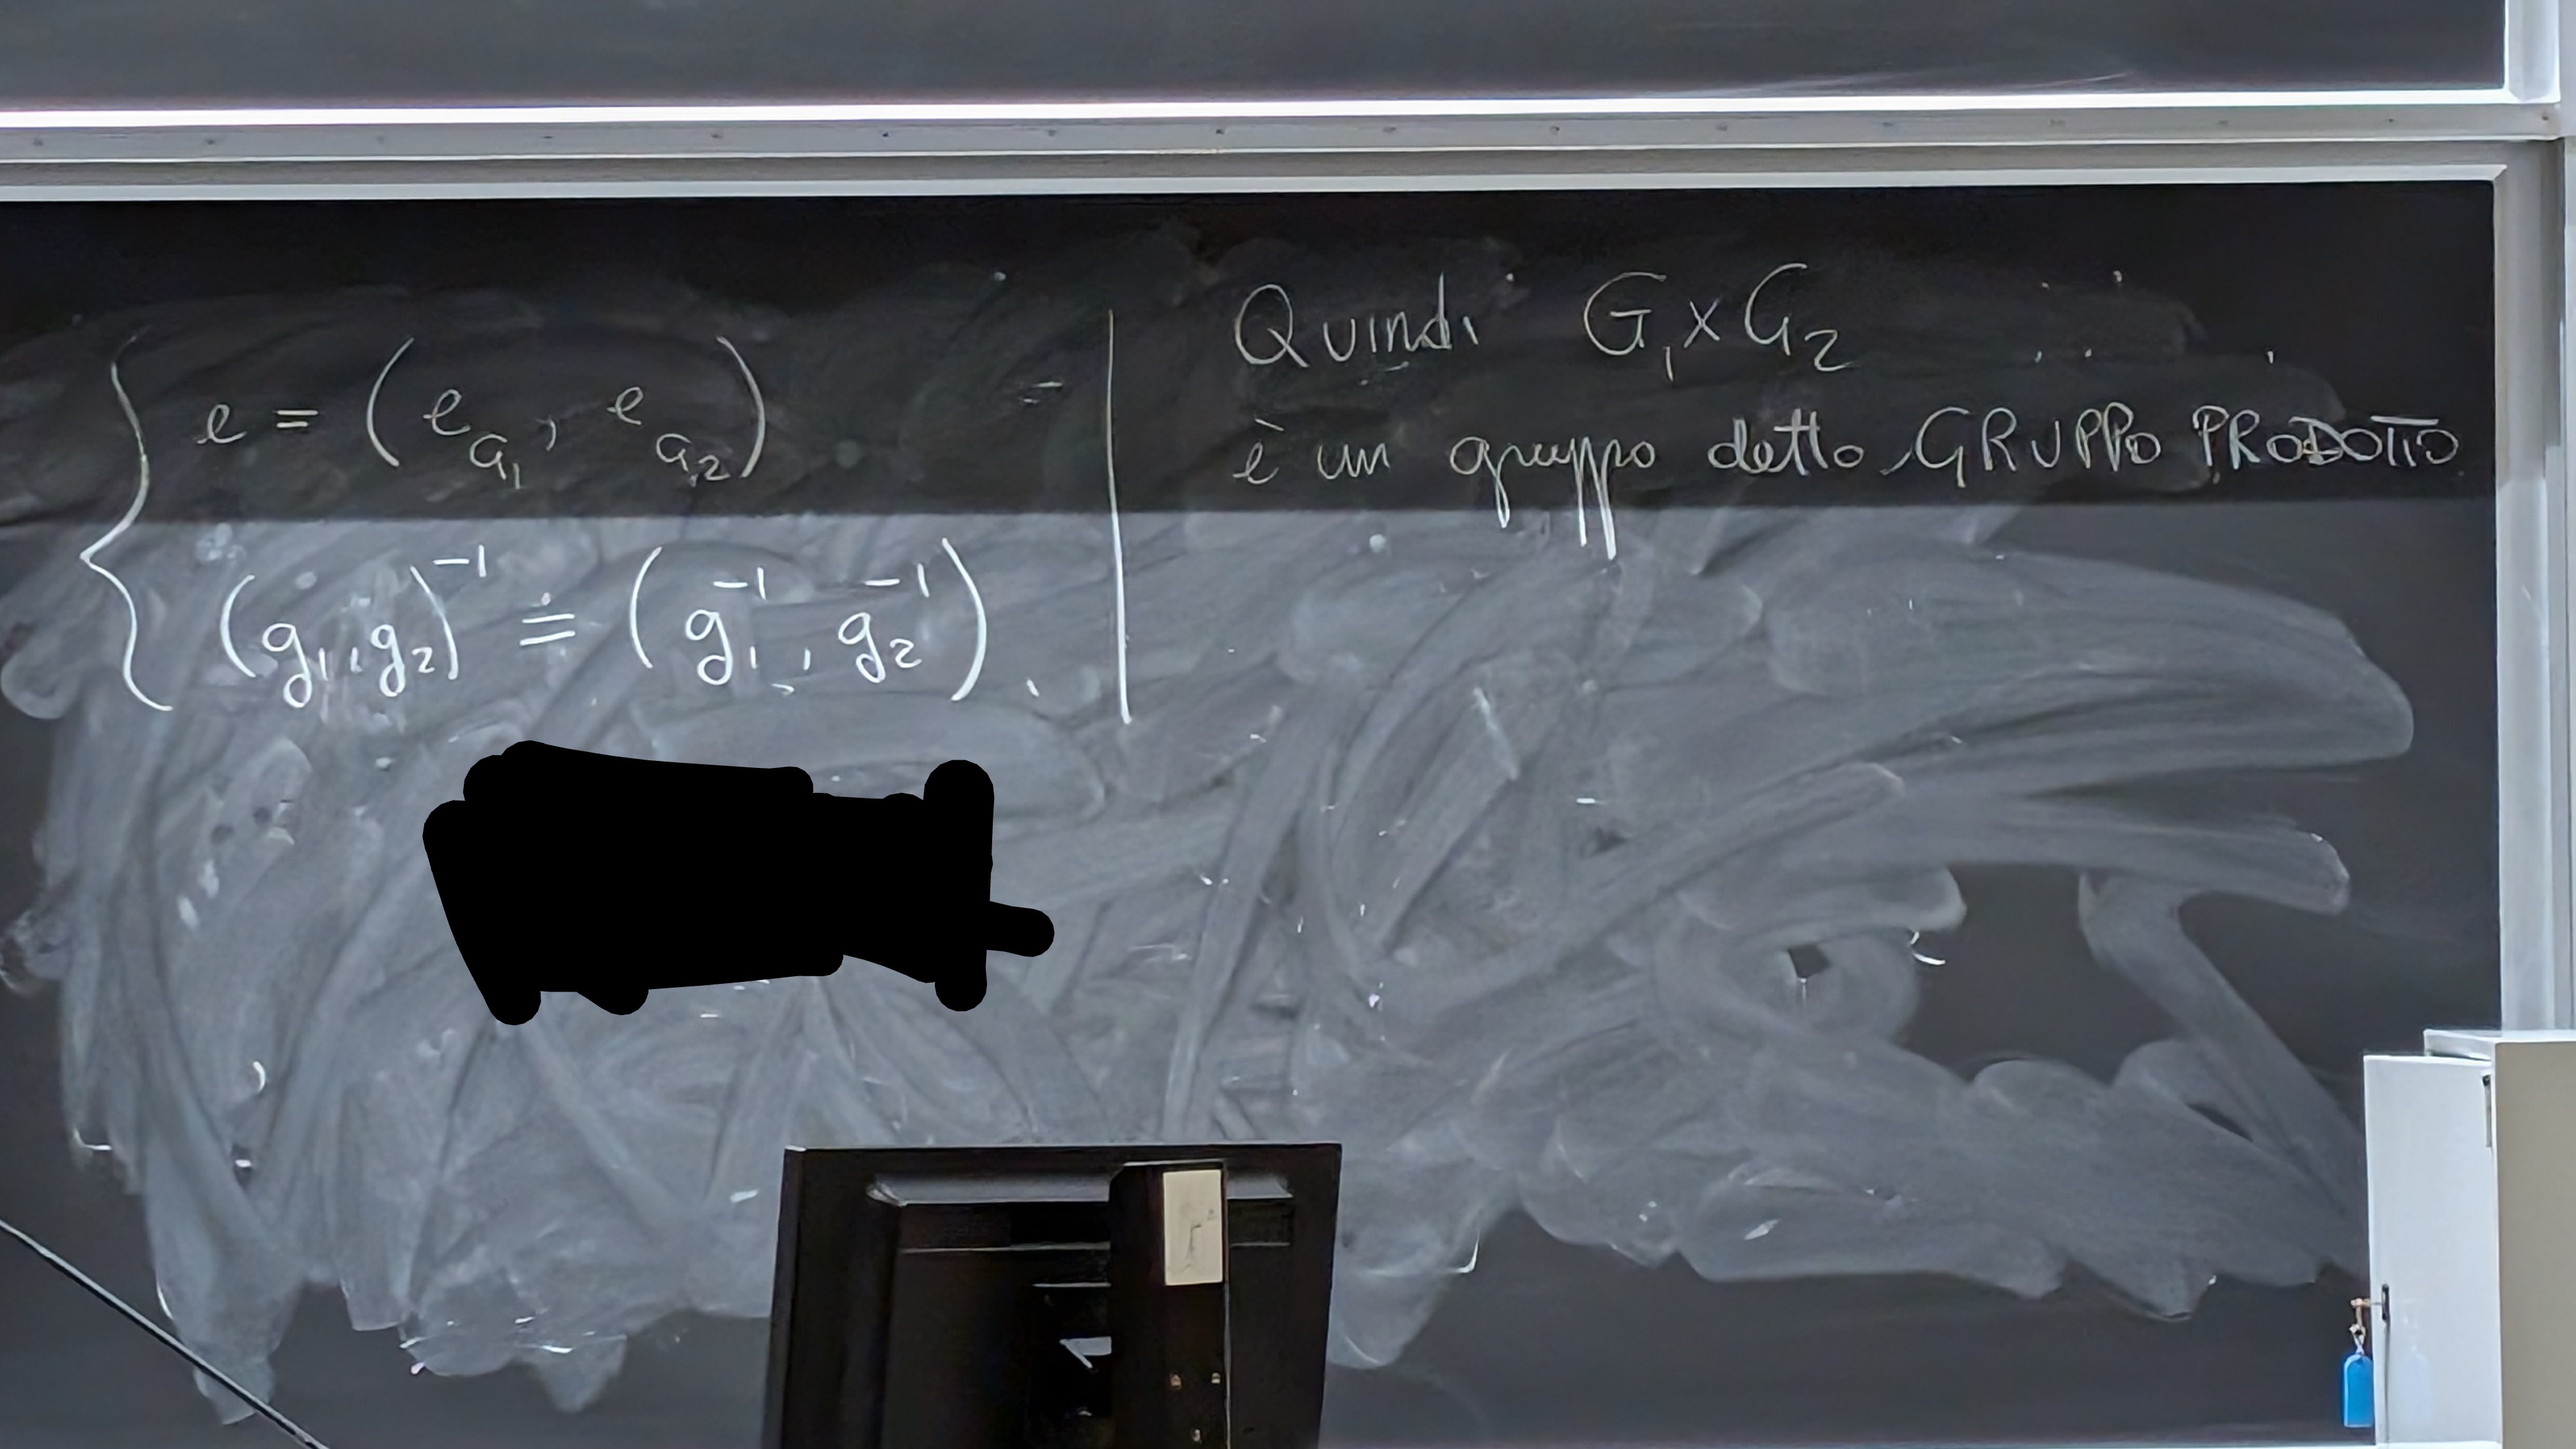 e = (e_{G_1}, e_{G_2})
(g_1, g_2)^{-1} = (g_1^{-1}, g_2^{-1}).
Quindi G_1 x G_2
è un gruppo detto GRUPPO PRODOTTO